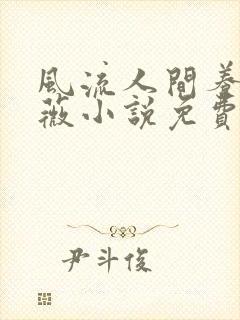 風流人間養
薇小說免費
尹斗俊